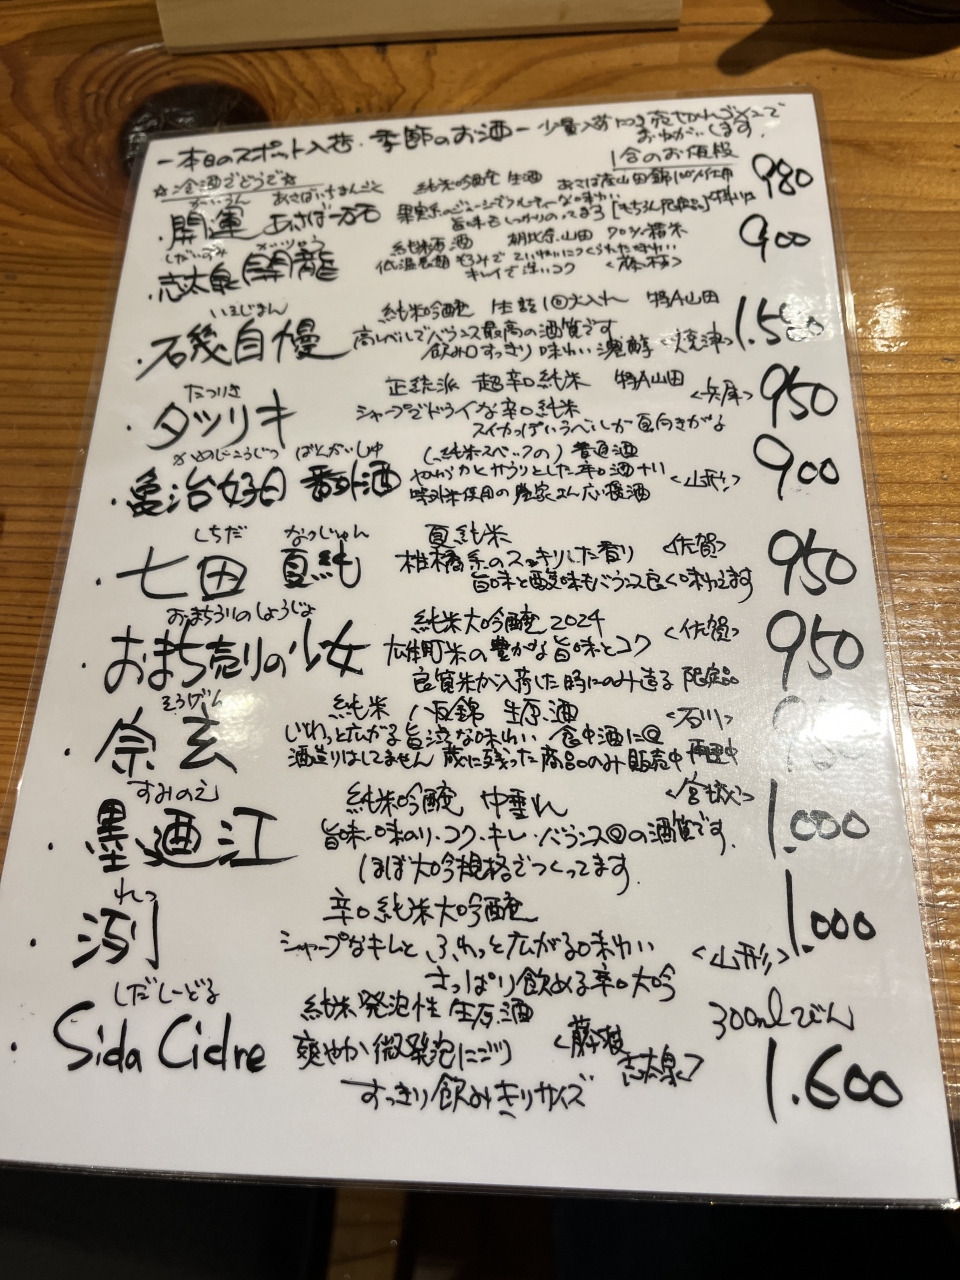 ー本日のスポット入荷・季節のお酒ー 少量入荷につき売切れごめんで
おねがいします。
☆冷酒でどうぞ☆
1合のお値段
かいうん あさばいちまんごく
純米吟醸 生酒 あさば産山田錦100%仕様
・開運 あさば一万石 果実系のジューシーでフルーティーな味わい
旨味もしっかりのってます【もちろん限定品】 980
しだいずみ かいりゅう
純米原酒 朝比奈山田 70%精米
・志太泉 開龍 低温長期もろみでていねいにつくられた味わい
キレイで渋いコク <藤枝> 900
いそじまん
純米吟醸 生詰1回火入れ 特A山田
・磯自慢 高レベルでバランス最高の酒質です
飲み口すっきり 味わい濃醇 <焼津> 1.500
たつりき
正統派 超辛口純米 特A山田
・タツリキ シャープでドライな辛口純米 <兵庫>
スイカっぽいラベルしか夏向きがな 950
かめじこうじつ ばんがいしゅ
(純米スペックの)普通酒
・亀治好日 番外酒 やわらかとサラリとした辛口酒 <山形>
等外米使用の農家さん応援酒 900
しちだ なつじゅん
夏純米
・七田 夏純 柑橘系のスッキリした香り <佐賀>
旨味と酸味もバランス良く味わえます 950
おまちうりのしょうじょ
純米大吟醸 2024
・おまち売りの少女 雄町米の豊かな旨味とコク <佐賀>
良質米が入荷した時にのみ造る 限定品 950
そうげん
純米 八反錦 生原酒 <石川>
・宗玄 じわっと広がる旨渋な味わい 食中酒に◎
酒造りはしてません 蔵に残った商品のみ販売中 再建中
すみのえ
純米吟醸 中垂れ <宮城>
・墨廼江 旨味・味のり・コク・キレ・バランス◎の酒質です。
ほぼ大吟規格でつくってます。 1.000
れつ
辛口純米大吟醸
・洌 シャープなキレと、ふわっと広がる味わい <山形>
さっぱり飲める辛口大吟 1.000
しだしーどる
純米発泡性 生原酒 300mlびん
・Sida Cidre 爽やか微発泡にごり <藤枝 志太泉>
すっきり飲みきりサイズ 1.600